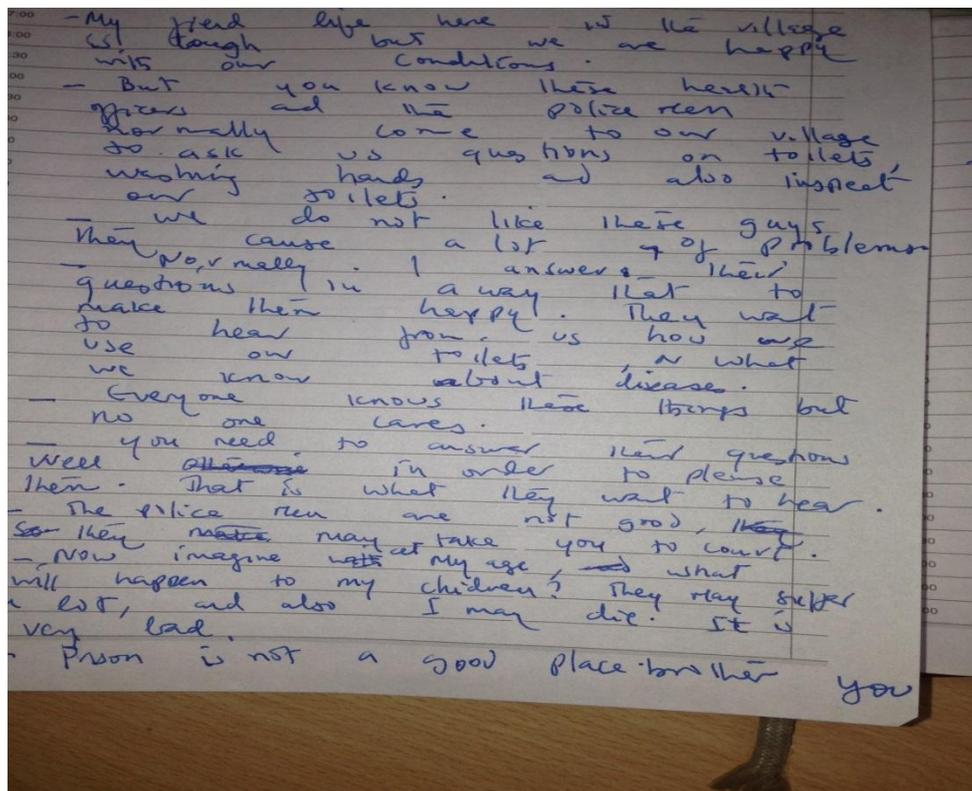 - My friend life here in the village
is tough but we are happy
with our conditions.
- But you know these health
officers and the police men
normally come to our village
to ask us questions on toilets,
washing hands and also inspect
our toilets.
- we do not like these guys
They cause a lot of problems
- Normally. I answer their
questions in a way that to
make them happy. They want
to hear from us how we
use our toilets, or what
we know about disease.
- Everyone knows these things but
no one cares.
- you need to answer their questions
well in order to please
them. That is what they want to hear.
- The police men are not good,
they may take you to court.
- Now imagine at my age, what
will happen to my children? They may suffer
a lot, and also I may die. It is
very bad.
- Prison is not a good place brother you